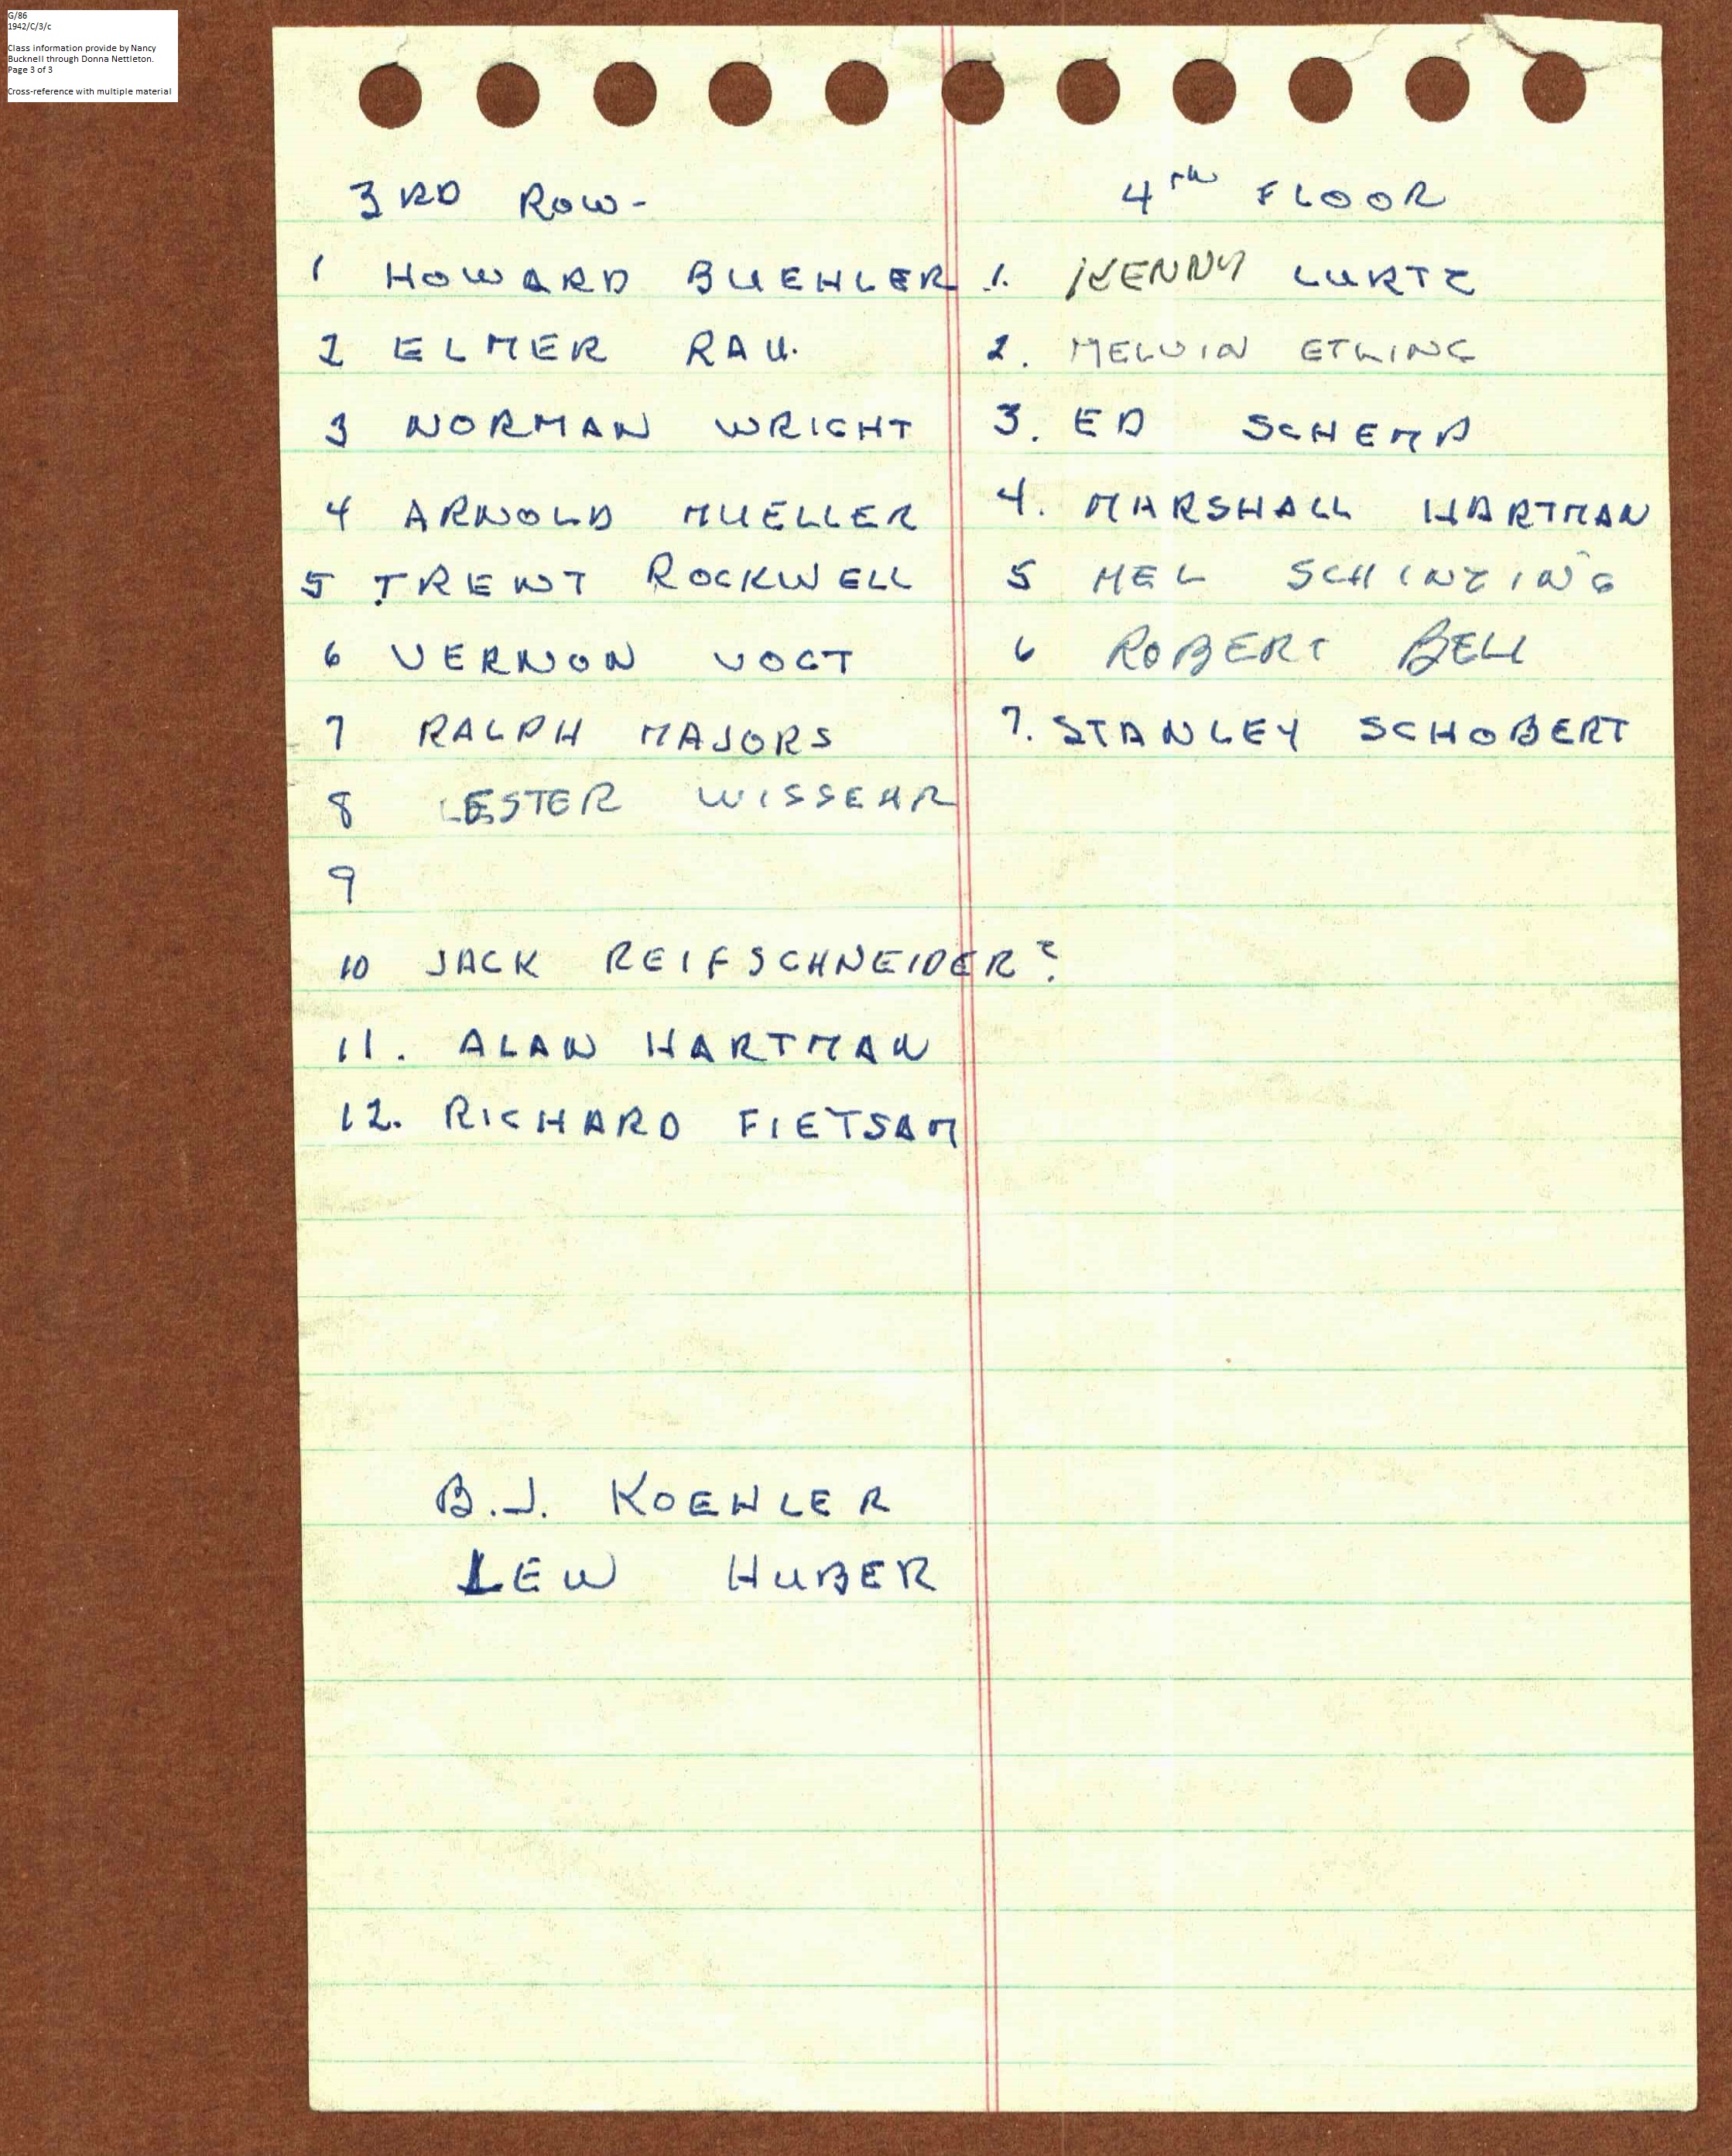 G/86
1942/C/3/c
Class information provide by Nancy
Bucknell through Donna Nettleton.
Page 3 of 3
Cross-reference with multiple material
3RD ROW-
1 HOWARD BUEHLER
2 ELMER RAU.
3 NORMAN WRIGHT
4 ARNOLD MUELLER
5 TRENT ROCKWELL
6 VERNON VOGT
7 RALPH MAJORS
8 LESTER WISSEHR
9
10 JACK REIFSCHNEIDER?
11. ALAN HARTMAN
12. RICHARD FIETSAM
B.J. KOEHLER
LEW HUBER
4TH FLOOR
1. KENNY LURTZ
2. MELVIN ETLING
3. ED SCHEMP
4. MARSHALL HARTMAN
5 MEL SCHINZING
6 ROBERT BELL
7. STANLEY SCHOBERT